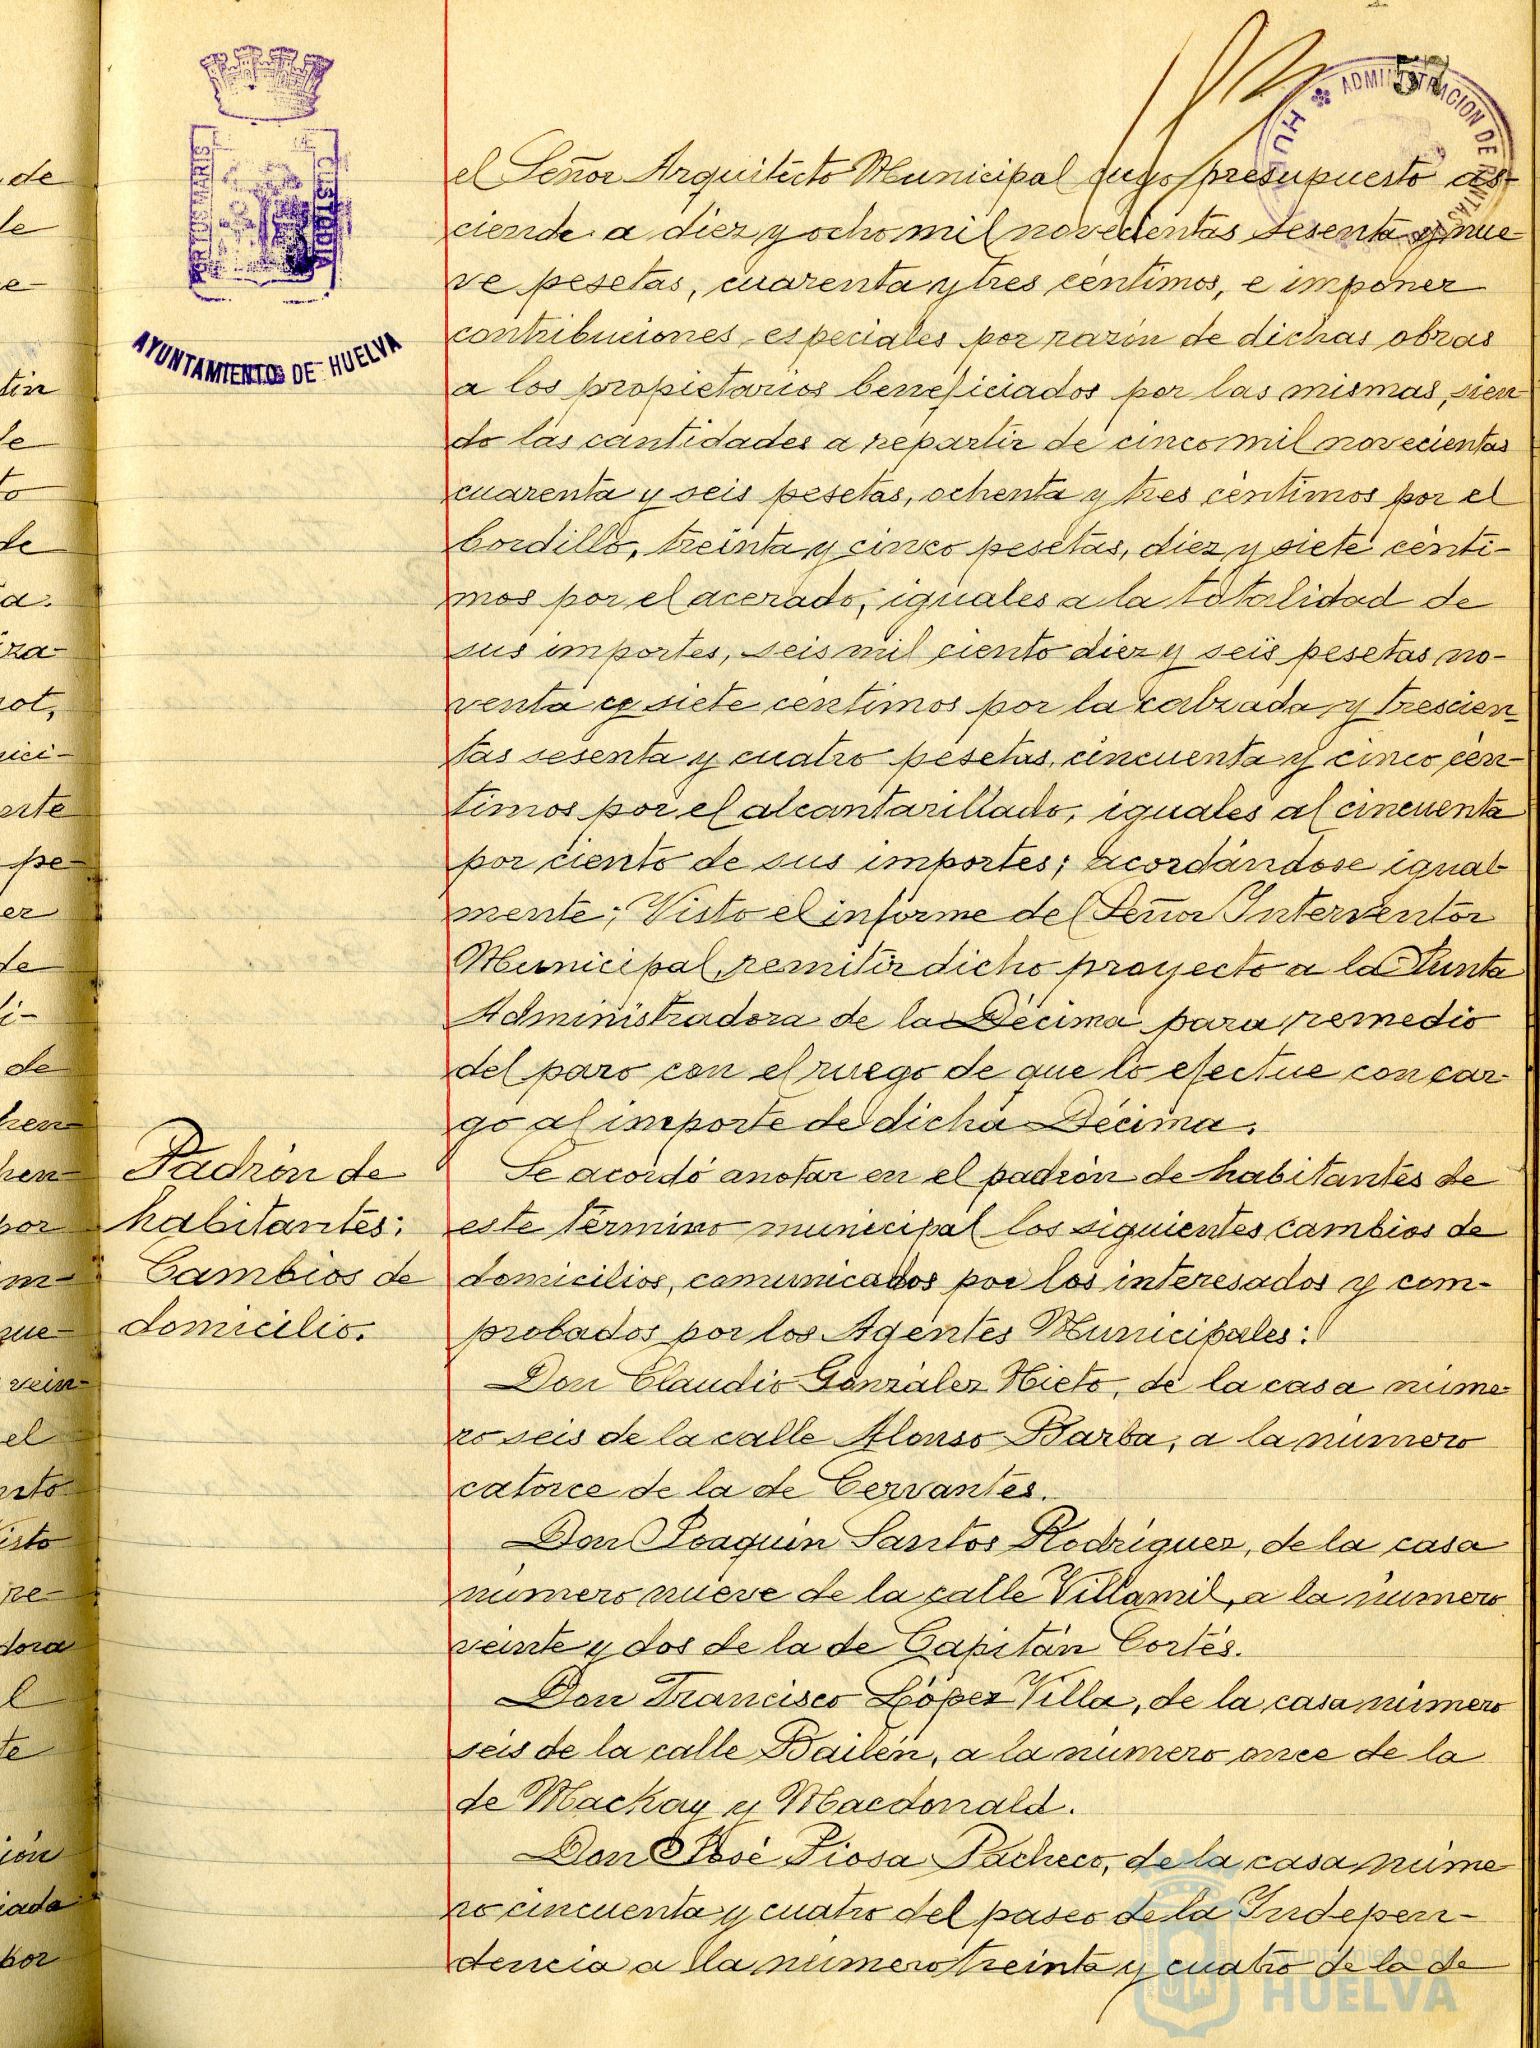 57
ADMINISTRACION DE RENTAS
PORTUS MARIS
CUSTODIA
AYUNTAMIENTO DE HUELVA
el Señor Arquitecto Municipal cuyo presupuesto as-
ciende a diez y ocho mil novecientas sesenta y nue-
ve pesetas, cuarenta y tres céntimos, e imponer
contribuciones especiales por razón de dichas obras
a los propietarios beneficiados por las mismas, sien-
do las cantidades a repartir de cinco mil novecientas
cuarenta y seis pesetas, ochenta y tres céntimos por el
bordillo, treinta y cinco pesetas, diez y siete cénti-
mos por el acerado, iguales a la totalidad de
sus importes, seis mil ciento diez y seis pesetas no-
venta y siete céntimos por la calzada, y trescien-
tas sesenta y cuatro pesetas, cincuenta y cinco cén-
timos por el alcantarillado, iguales al cincuenta
por ciento de sus importes; acordándose igual-
mente; Visto el informe del Señor Interventor
Municipal, remitir dicho proyecto a la Junta
Administradora de la Décima para remedio
del paro con el ruego de que lo efectue con car-
go al importe de dicha Décima.
Padrón de
habitantes:
Cambios de
domicilio.
Se acordó anotar en el padrón de habitantes de
este término municipal los siguientes cambios de
domicilios, comunicados por los interesados y com-
probados por los Agentes Municipales:
Don Claudio González Nieto, de la casa núme-
ro seis de la calle Alonso Barba, a la número
catorce de la de Cervantes.
Don Joaquín Santos Rodríguez, de la casa
número nueve de la calle Villamil, a la número
veinte y dos de la de Capitán Cortés.
Don Francisco López Villa, de la casa número
seis de la calle Bailén, a la número once de la
de Mackay y Macdonald.
Don José Piosa Pacheco, de la casa núme-
ro cincuenta y cuatro del paseo de la Indepen-
dencia a la número treinta y cuatro de la de
Ayuntamiento de
HUELVA